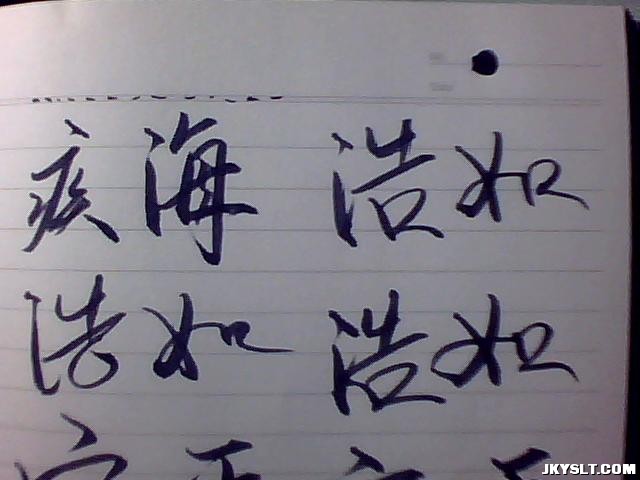 疾海 浩如
浩如 浩如
JKYSLT.COM